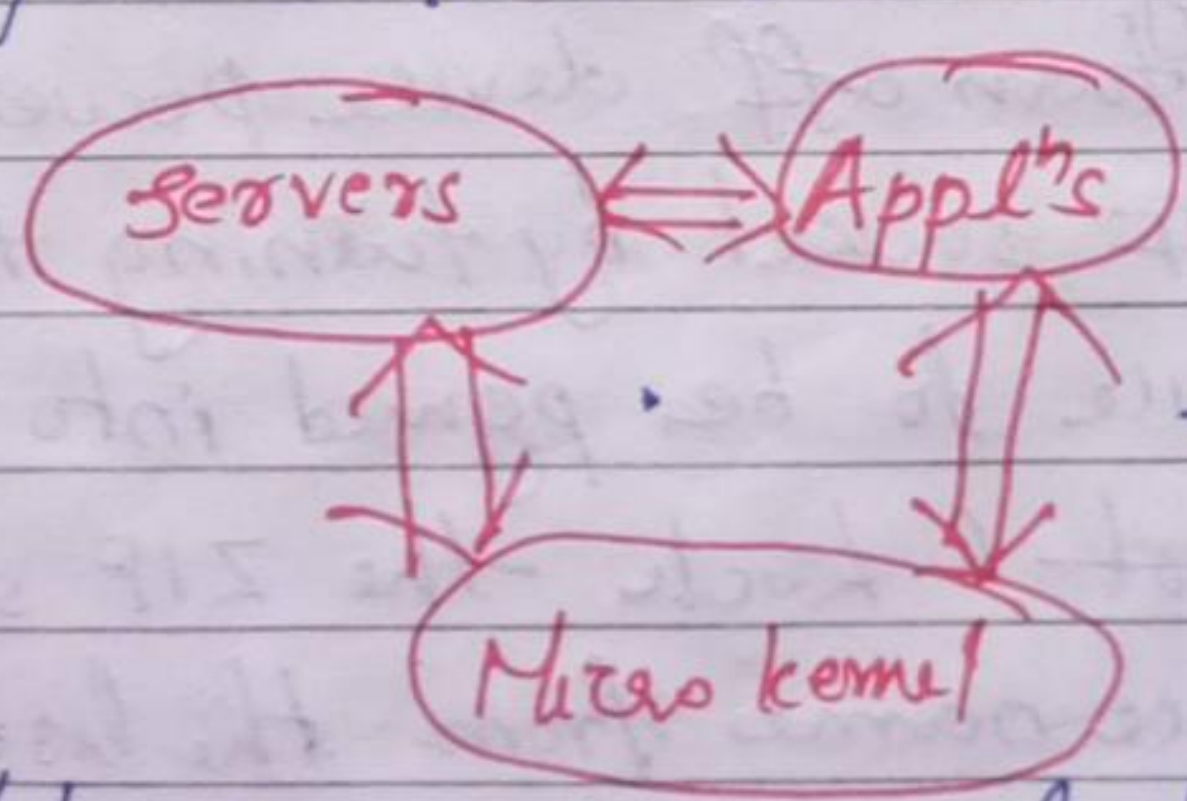 Servers
Appl^n's
Micro kernel